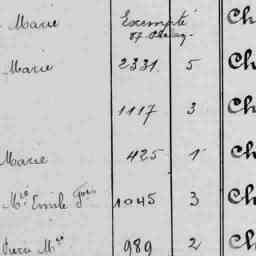 Marie Exempté Ch
Marie 2331 5 Ch
1117 3 Ch
Marie 425 1 Ch
Mie Emile Fçois 1045 3 Ch
Mie 989 2 Ch